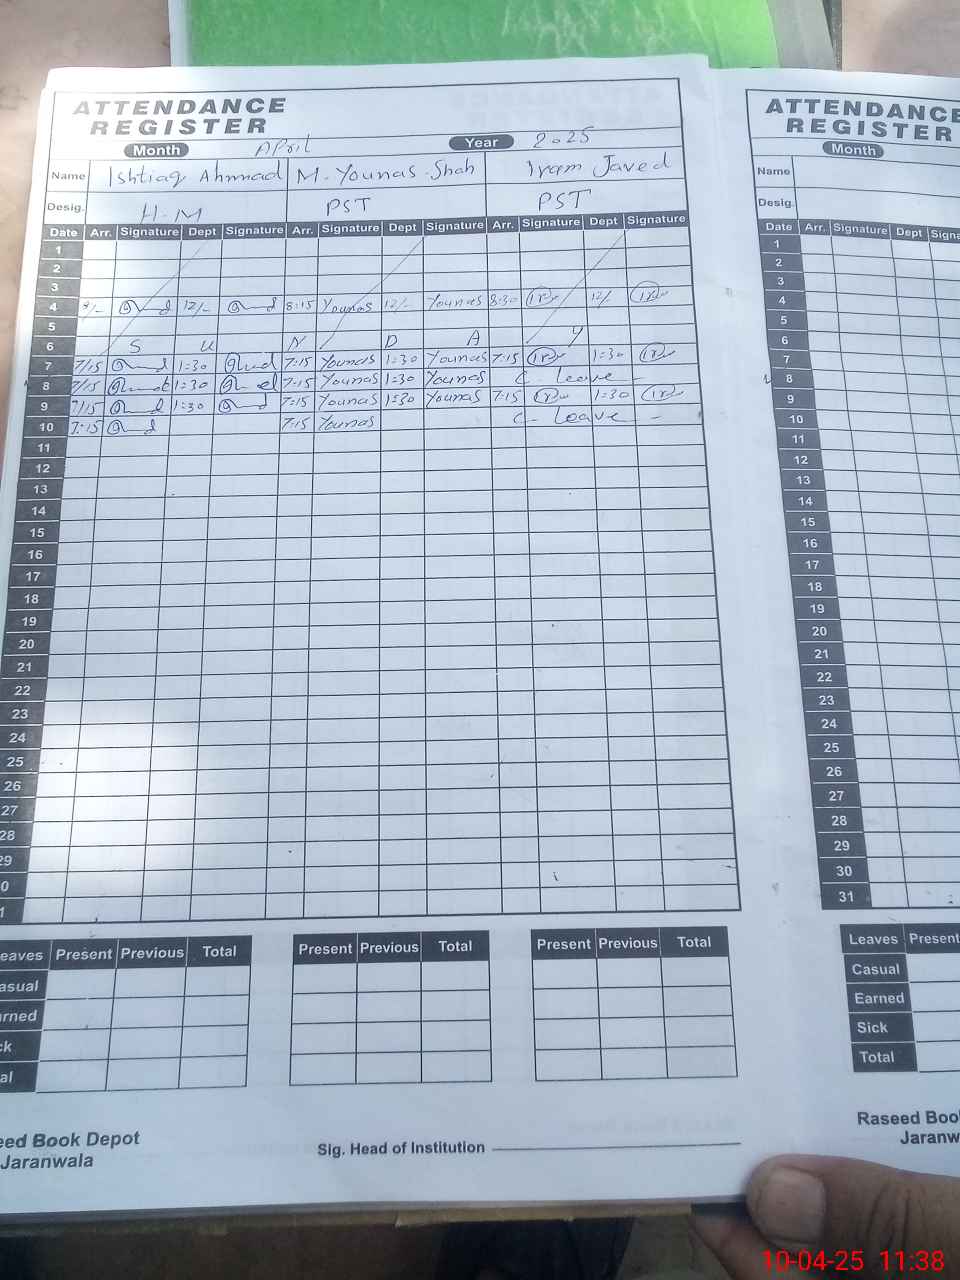 ATTENDANCE
REGISTER
Month April Year 2025
Name Ishtiaq Ahmad M. Younas Shah Iram Javed
Desig. H.M PST PST
Date Arr. Signature Dept Signature Arr. Signature Dept Signature Arr. Signature Dept Signature
1
2
3
4 8/- 12/- 8:15 Younas 12/- Younas 8:30 12/-
5
6 S U N D A Y
7 7/15 1:30 7:15 Younas 1:30 Younas 7:15 1:30
8 7/15 1:30 7:15 Younas 1:30 Younas C. leave -
9 7/15 1:30 7:15 Younas 1:30 Younas 7:15 1:30
10 7:15 7:15 Younas C- leave -
11
12
13
14
15
16
17
18
19
20
21
22
23
24
25
26
27
28
29
0
1
eaves Present Previous Total Present Previous Total Present Previous Total
asual
rned
ck
al
eed Book Depot
Jaranwala
Sig. Head of Institution
ATTENDANCE
REGISTER
Month
Name
Desig.
Date Arr. Signature Dept Signa
1
2
3
4
5
6
7
8
9
10
11
12
13
14
15
16
17
18
19
20
21
22
23
24
25
26
27
28
29
30
31
Leaves Present
Casual
Earned
Sick
Total
Raseed Boo
Jaranw
10-04-25 11:38